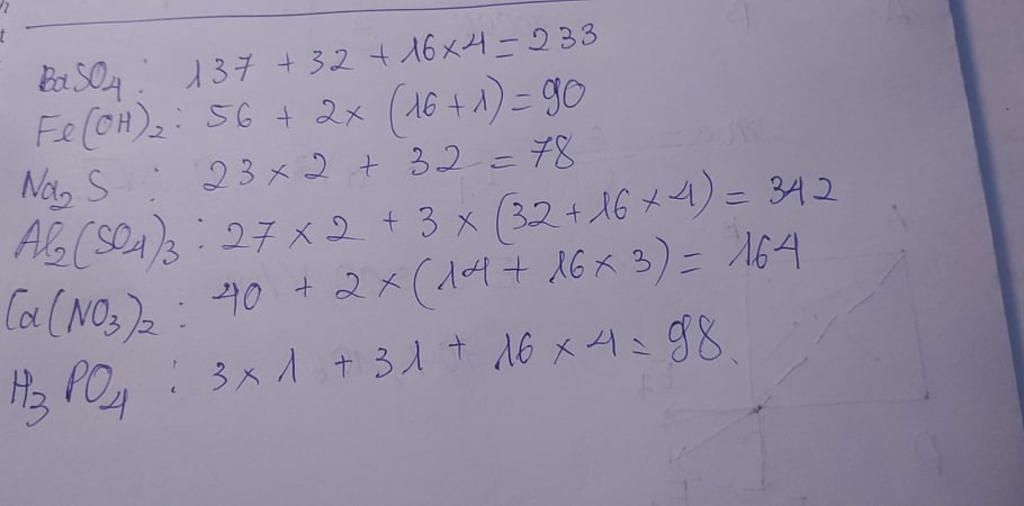 BaSO4 : 137 + 32 + 16×4 = 233
Fe(OH)2 : 56 + 2× (16 + 1) = 90
Na2S : 23 × 2 + 32 = 78
Al2(SO4)3 : 27 × 2 + 3 × (32 + 16 × 4) = 342
Ca(NO3)2 : 40 + 2 × (14 + 16 × 3) = 164
H3PO4 : 3 × 1 + 31 + 16 × 4 = 98.